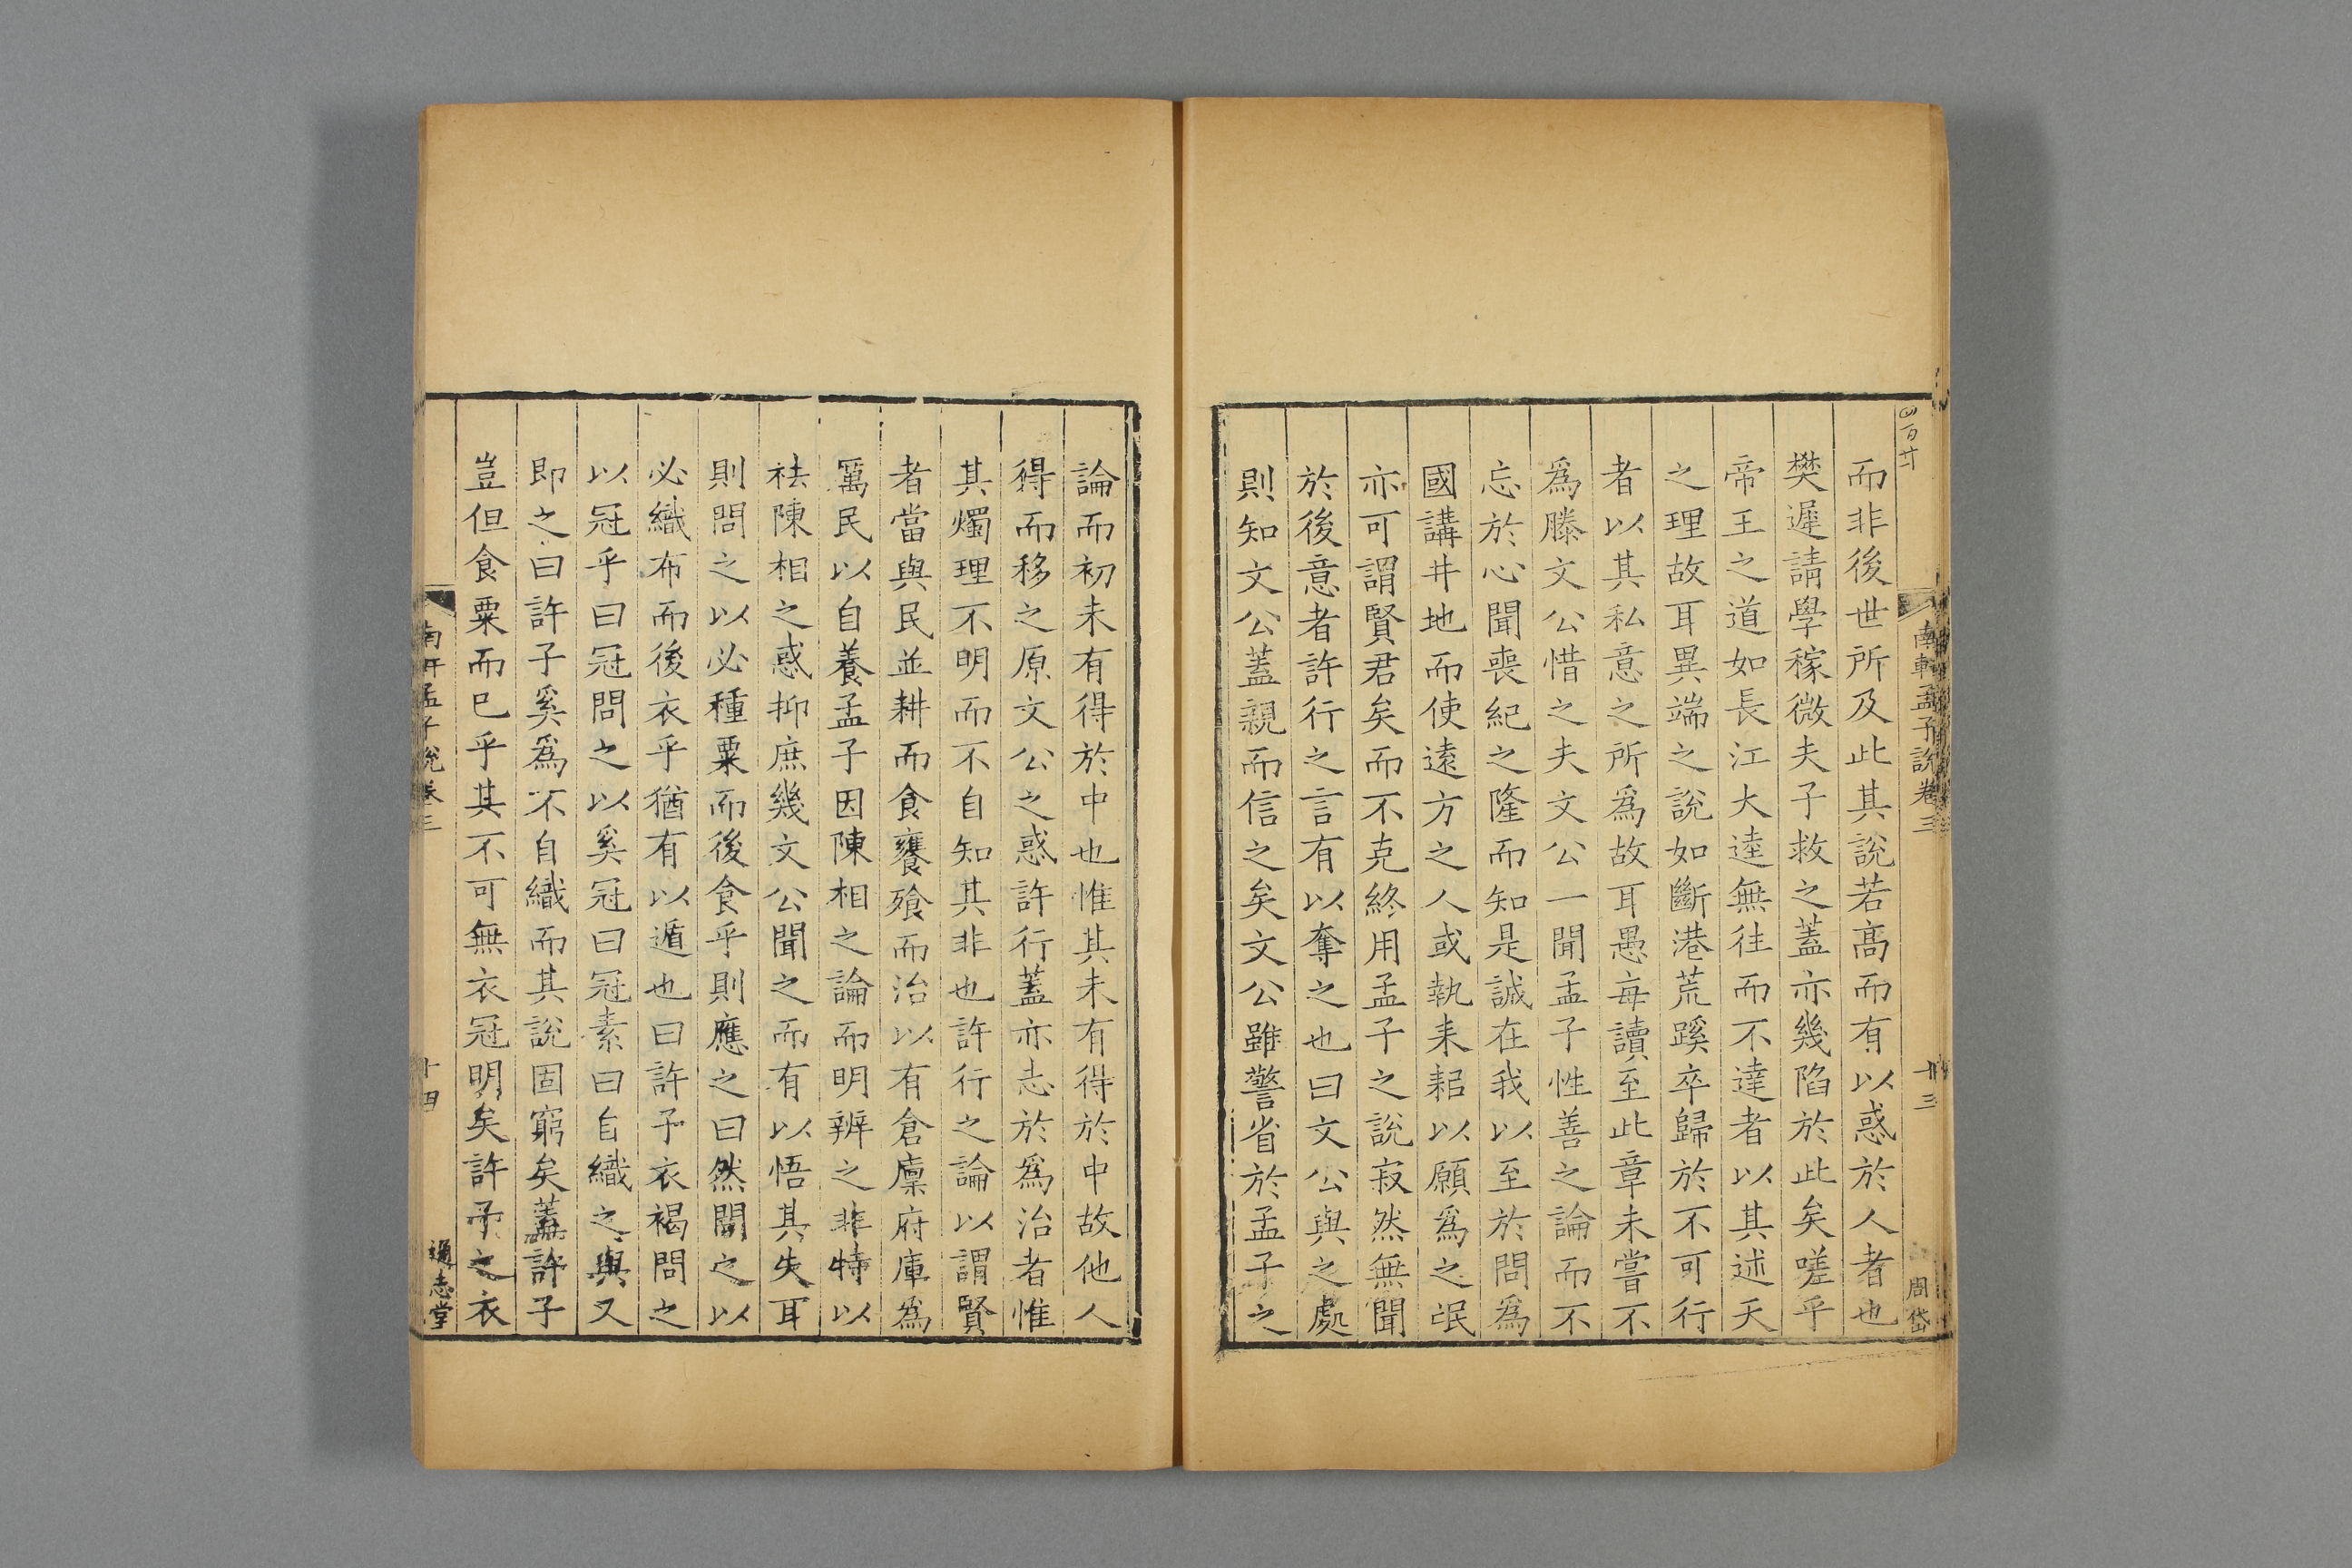 四百廿
南軒孟子說卷三
十三
周岱
而非後世所及此其說若高而有以惑於人者也
樊遲請學稼微夫子救之蓋亦幾陷於此矣嗟乎
帝王之道如長江大逵無往而不達者以其述天
之理故耳異端之說如斷港荒蹊卒歸於不可行
者以其私意之所爲故耳愚每讀至此章未嘗不
爲滕文公惜之夫文公一聞孟子性善之論而不
忘於心聞喪紀之隆而知是誠在我以至於問爲
國講井地而使遠方之人或執耒耜以願爲之氓
亦可謂賢君矣而不克終用孟子之說寂然無聞
於後意者許行之言有以奪之也曰文公與之處
則知文公蓋親而信之矣文公雖警省於孟子之
論而初未有得於中也惟其未有得於中故他人
得而移之原文公之惑許行蓋亦志於爲治者惟
其燭理不明而不自知其非也許行之論以謂賢
者當與民並耕而食饔飱而治以有倉廩府庫爲
厲民以自養孟子因陳相之論而明辨之非特以
祛陳相之惑抑庶幾文公聞之而有以悟其失耳
則問之以必種粟而後食乎則應之曰然問之以
必織布而後衣乎猶有以遁也曰許子衣褐問之
以冠乎曰冠問之以奚冠曰冠素曰自織之與又
即之曰許子奚爲不自織而其說固窮矣蓋許子
豈但食粟而已乎其不可無衣冠明矣許子之衣
南軒孟子說卷三
十四
通志堂